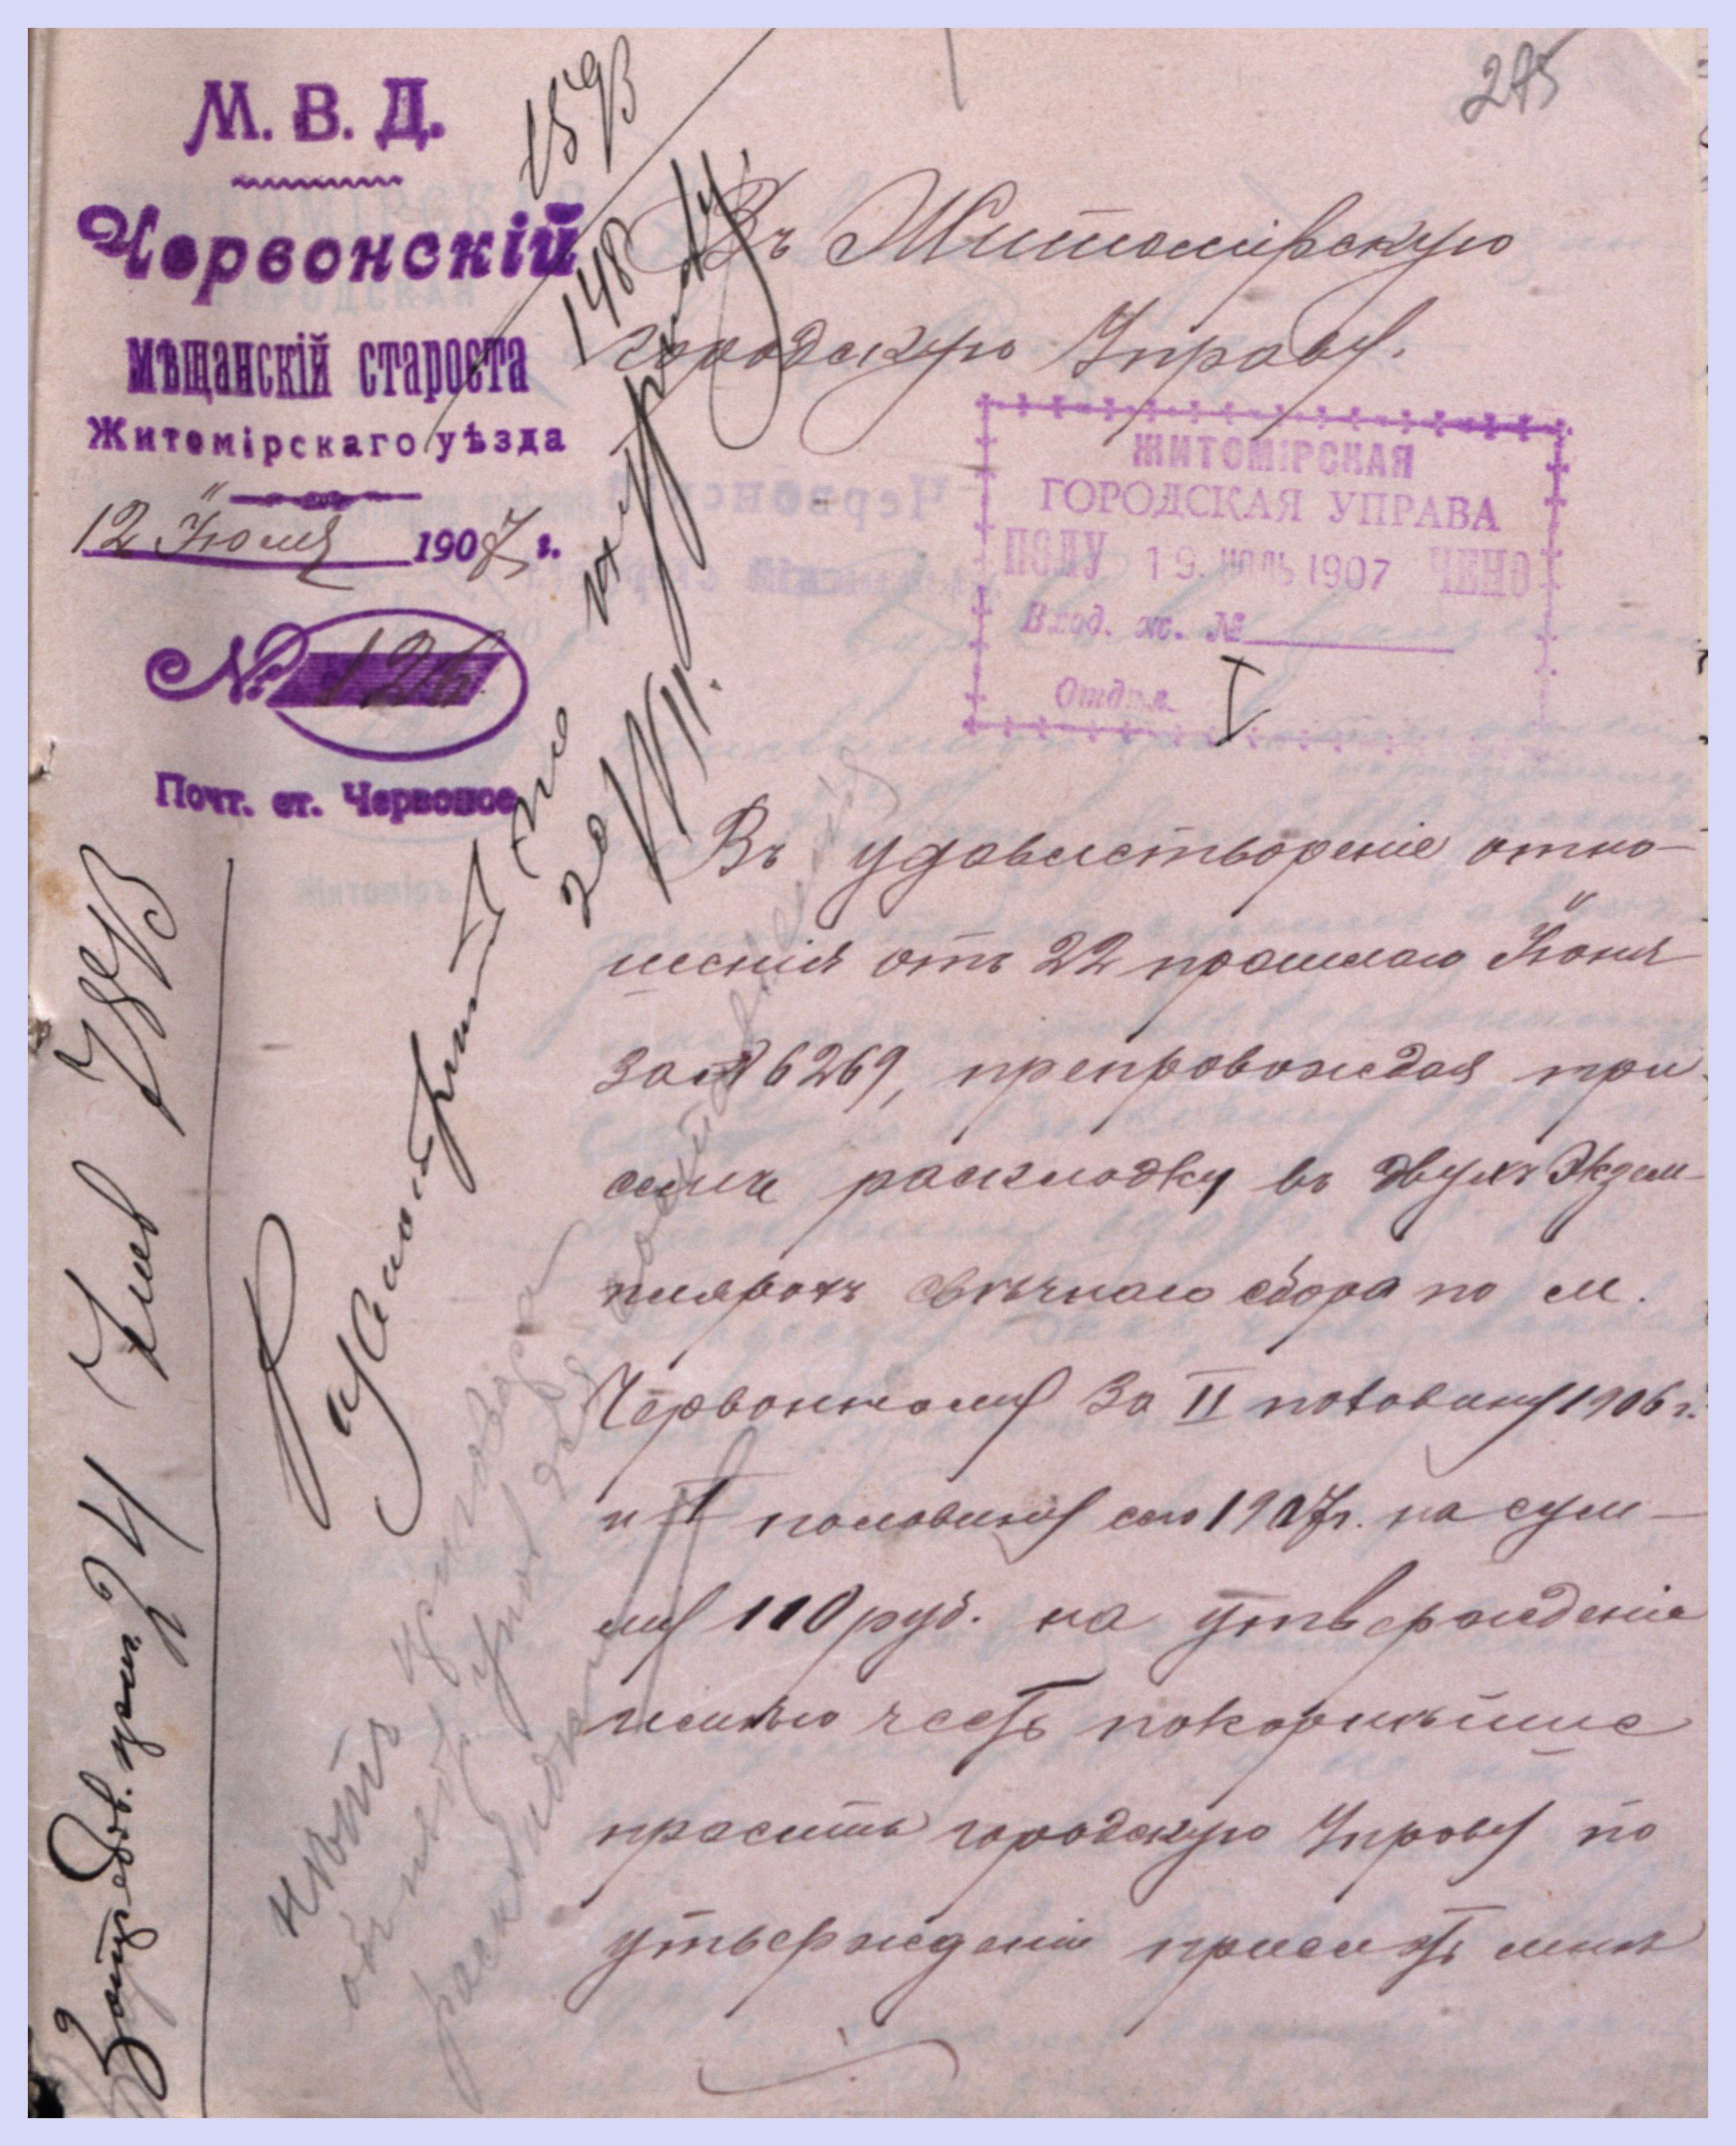 245
М. В. Д.
Червонскій
мѣщанскій староста
Житомірскаго уѣзда
12 Іюля 1907 г.
№ 126
Почт. ст. Червоное
Въ Житомірскую
городскую Управу.
ЖИТОМІРСКАЯ
ГОРОДСКАЯ УПРАВА
ПОЛУ 19. ИЮЛЬ 1907 ЧЕНО
Вход. ж. №
Отдѣл. V
Въ удовлетвореніе отно-
шенія отъ 22 прошлаго Іюня
за № 6269, препровождая при
семъ раскладку въ двухъ Экзем-
плярахъ свѣчнаго сбора по м.
Червонному за II половину 1906 г.
и I половину сего 1907 г. на сум-
му 110 руб. на утвержденіе
имѣю честь покорнѣйше
просить городскую Управу по
утвержденіи прислать мнѣ
20/VII.
нѣтъ